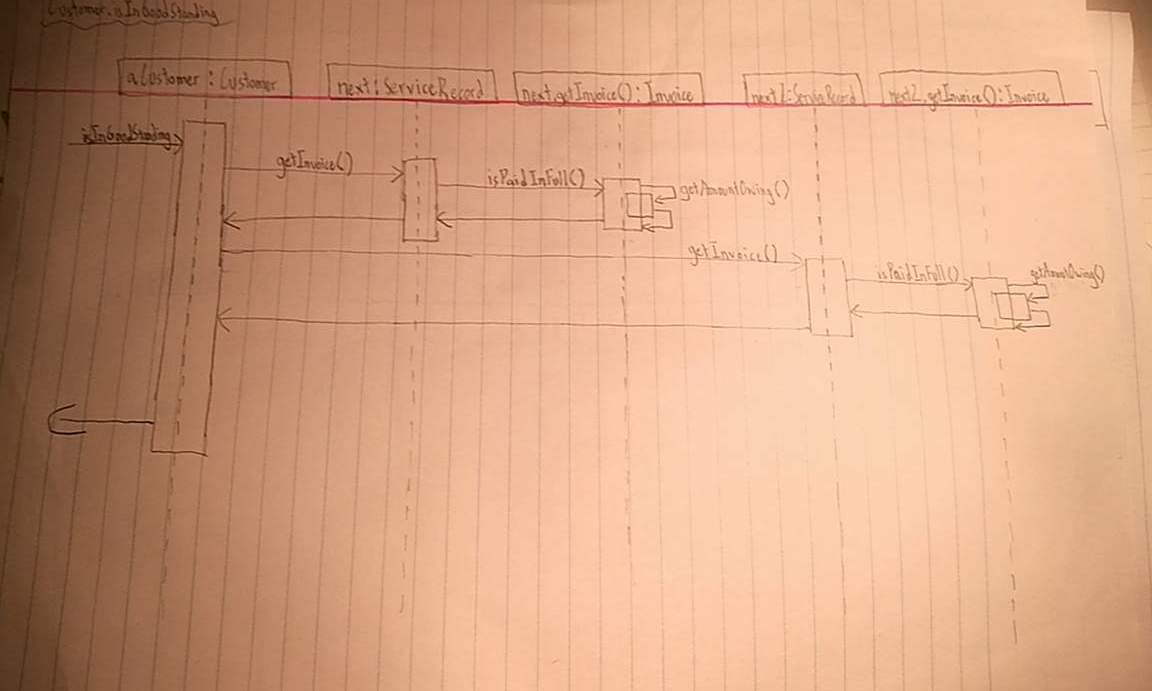 Customer.isInGoodStanding
aCustomer : Customer
next : ServiceRecord
next.getInvoice() : Invoice
next2 : ServiceRecord
next2.getInvoice() : Invoice
isInGoodStanding
getInvoice()
isPaidInFull()
getAmountOwing()
getInvoice()
isPaidInFull()
getAmountOwing()